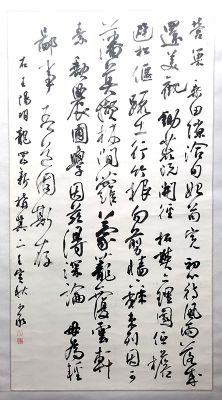 營乘田隙洽旬始苟完初心待風雨落成
還美觀鋤荒既開徑拓樊亦理園低檐
避松偃疏土行竹根勿剪牆下棘束列因可
藩莫擷林間蘿蒙籠覆雲軒
素農圃學因茲得深論毋為輕
鄙事吾道固斯存
右王陽明龍岡新構其二